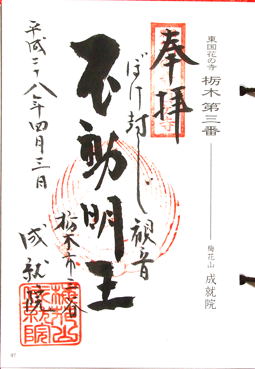 東国花の寺 栃木 第三番 梅花山 成就院
奉拝
ぼけ封じ観音
不動明王
栃木市三谷
平成二十八年四月三日
成就院
97